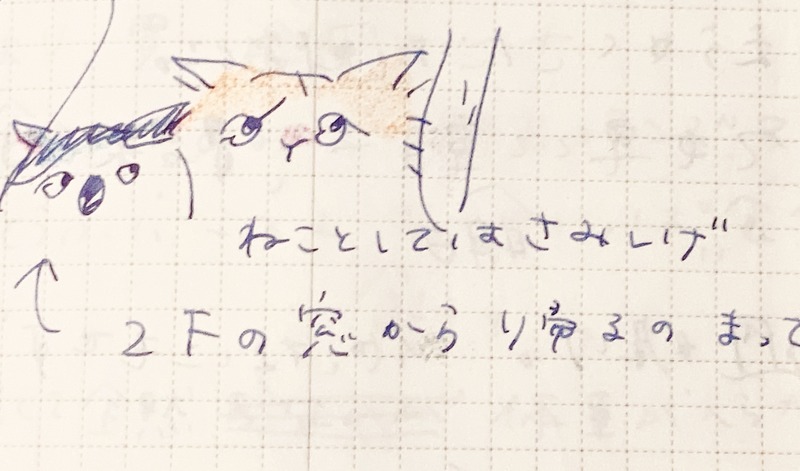 ねことしてはさみしげ
2Fの窓から帰るのまって